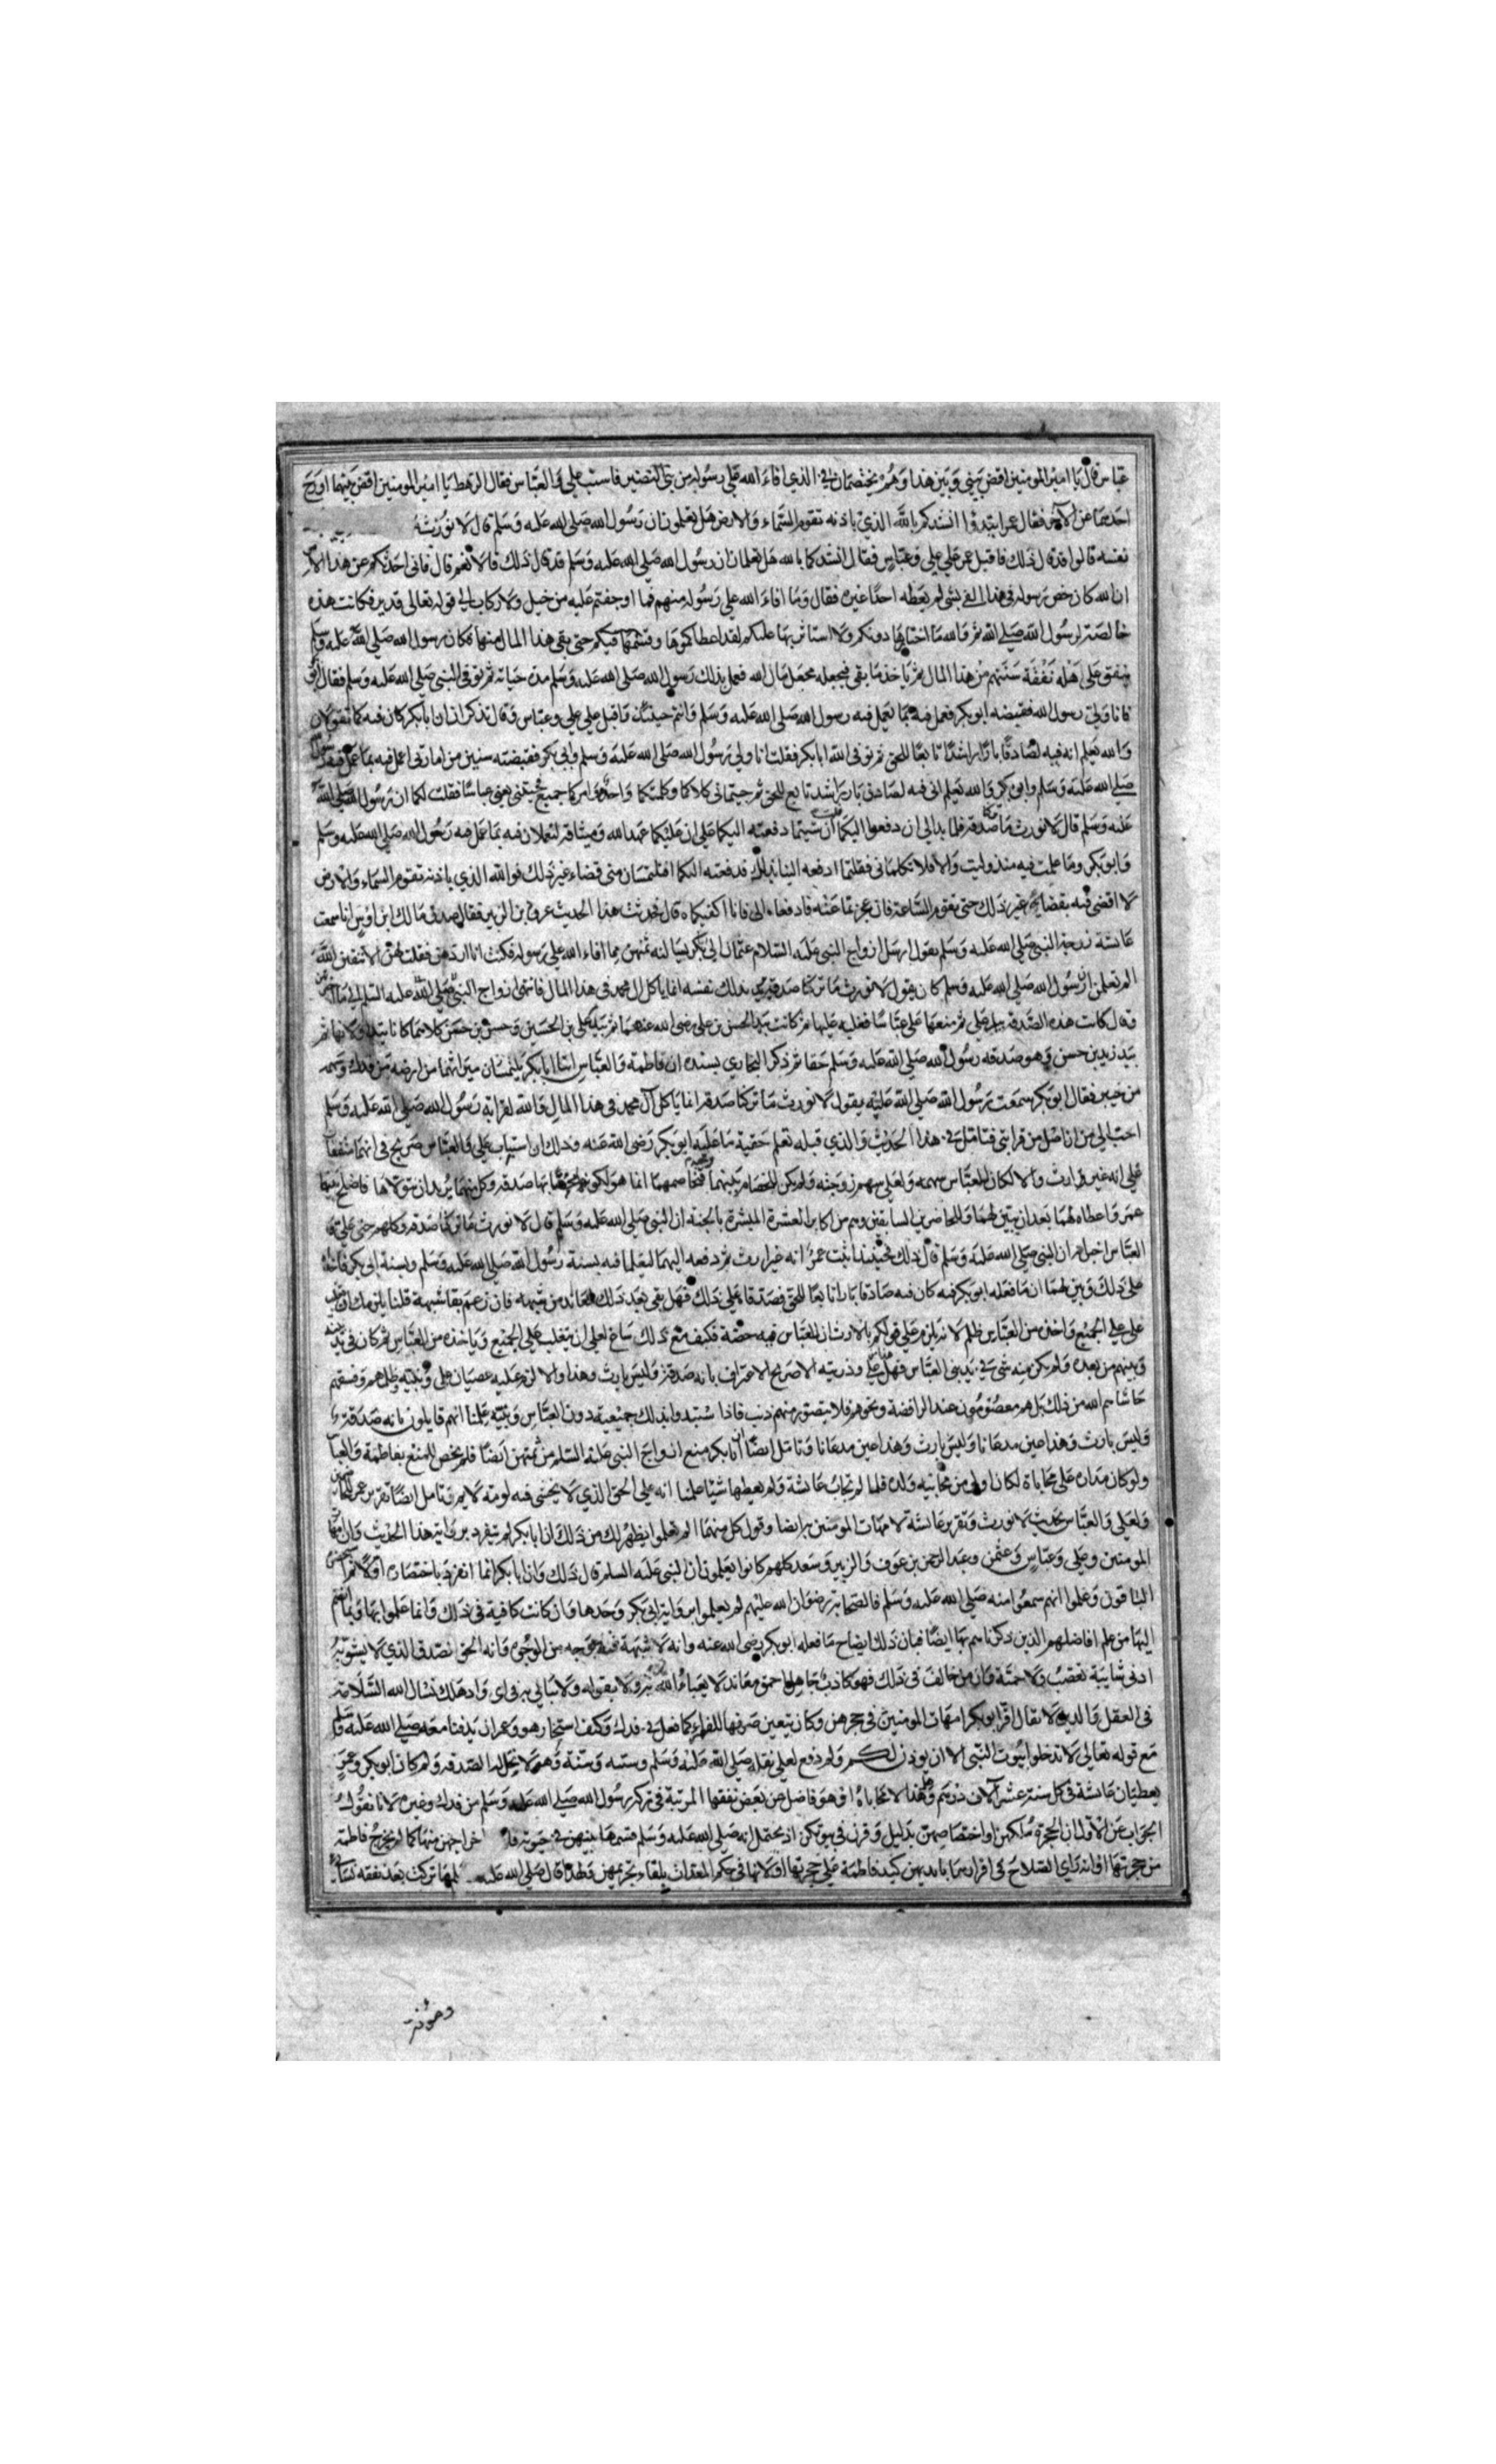 عباس قال يا امير المومنين اقض بيني وبين هذا وهم يختصمان في الذي افاء الله على رسوله من بني النضير فاستب علي والعباس فقال الرهط يا امير المومنين اقض بينهما وارح
احدهما عن الآخر فقال عمر ابتدؤا انشدكم بالله الذي باذنه تقوم السماء والارض هل تعلمون ان رسول الله صلى الله عليه وسلم قال لا نورث
نفسه قالوا قد قال ذلك فاقبل عمر على علي وعباس فقال انشدكما بالله هل تعلمان ان رسول الله صلى الله عليه وسلم قد قال ذلك قالا نعم قال فاني احدثكم عن هذا الامر
ان الله كان خص رسوله في هذا الفي بشي لم يعطه احدا غيره فقال وما افاء الله على رسوله منهم فما اوجفتم عليه من خيل ولا ركاب الى قوله تعالى قدير فكانت هذه
خالصة لرسول الله صلى الله ثم والله ما اختارها دونكم ولا استاثر بها عليكم لقد اعطاكموها وقسمها فيكم حتى بقي هذا المال منها فكان رسول الله صلى الله عليه وسلم
ينفق على اهله نفقة سنتهم من هذا المال ثم ياخذ ما بقي فيجعله مجعل مال الله فعمل بذلك رسول الله صلى الله عليه وسلم مدة حياته ثم توفي النبي صلى الله عليه وسلم فقال ابو بكر
فانا ولي رسول الله فقبضه ابو بكر فعمل فيه بما يعمل فيه رسول الله صلى الله عليه وسلم وانتم حينئذ واقبل على علي وعباس وقال تذكران ان ابا بكر كان فيه كما تقولان
والله يعلم انه فيه لصادق بار راشد تابع للحق ثم توفى الله ابا بكر فقلت انا ولي رسول الله صلى الله عليه وسلم وابي بكر فقبضته سنين من امارتي اعمل فيه بما عمل فيه رسول الله
صلى الله عليه وسلم وابو بكر والله يعلم اني فيه لصادق بار راشد تابع للحق ثم جيتماني كلاكما وكلمتكما واحدة وامركما جميع فجيتني يعني عباسا فقلت لكما ان رسول الله صلى الله
عليه وسلم قال لا نورث ما تركنا صدقة فلما بدا لي ان ادفعه اليكما قلت ان شيتما دفعته اليكما على ان عليكما عهد الله وميثاقه لتعملان فيه بما عمل فيه رسول الله صلى الله عليه وسلم
وابو بكر وما عملت فيه منذ وليت والا فلا تكلماني فقلتما ادفعه الينا بذلك فدفعته اليكما افتلتمسان مني قضاء غير ذلك فوالله الذي باذنه تقوم السماء والارض
لا اقضي فيه بقضاء غير ذلك حتى تقوم الساعة فان عجزتما عنه فادفعاه الي فانا اكفيكماه قال فحدثت هذا الحديث عروة بن الزبير فقال صدق مالك ابن اوس انا سمعت
عائشة زوجة النبي صلى الله عليه وسلم تقول ارسل ازواج النبي عليه السلام عثمان الى ابي بكر يسالنه ثمنهن مما افاء الله على رسوله فكنت انا اردهن فقلت لهن الا تتقين الله
الم تعلمن ان رسول الله صلى الله عليه وسلم كان يقول لا نورث ما تركنا صدقة يريد بذلك نفسه انما ياكل ال محمد في هذا المال فانتهى ازواج النبي صلى الله عليه السلم الى ما اخبرتهن
وقال كانت هذه الصدقة بيد علي ثم منعها علي عباسا فغلبه عليها ثم كانت بيد الحسن بن علي رضى الله عنهما ثم بيد علي بن الحسين وحسن بن حسن كلاهما كانا يتداولانها ثم
بيد زيد بن حسن وهو صدقه رسول الله صلى الله عليه وسلم حقا ثم ذكر البخاري بسنده ان فاطمة والعباس اتيا ابا بكر يلتمسان ميراثهما من ارضه من فدك وسهمه
من خيبر فقال ابو بكر سمعت رسول الله صلى الله عليه يقول لا نورث ما تركنا صدقة انما ياكل آل محمد في هذا المال والله لقرابة رسول الله صلى الله عليه وسلم
احب الي من ان اصل من قرابتي فتامل في هذا الحديث والذي قبله تعلم حقية ما عليه ابو بكر رضى الله عنه وذلك ان استباب علي والعباس صريح في انهما متفقان
على انه غير وارث والا لكان للعباس سهمه ولعلي سهم زوجته ولم يكن للخصام بينهما وجه فتخاصمهما انما هو لكونها صدقة وكل منهما يريد ان يتولاها فاصلح بينهما
عمر واعطاه لهما بعد ان بين لهما وللحاضرين السابقين وهم من اكابر العشرة المبشرة بالجنة ان النبي صلى الله عليه وسلم قال لا نورث ما تركنا صدقة وكلهم حتى علي و
العباس اخبر بان النبي صلى الله عليه وسلم قال ذلك فحينئذ اثبت عمر انه غير ارث ثم دفعه اليهما ليعملا فيه بسنة رسول الله صلى الله عليه وسلم وبسنة ابي بكر فاخذاه
على ذلك وبين لهما ان ما فعله ابو بكر فيه كان فيه صادقا بارا تابعا للحق فصدقاه على ذلك فهل بقي بعد ذلك لمعاند من شبهة فان زعم بقا شبهة قلنا يلزمك ان تغلب
علي على الجميع واخذه من العباس ظلم لانه يلزم على قولكم بالارث ان للعباس فيه حصة فكيف مع ذلك ساغ لعلي ان يتغلب على الجميع وياخذه من العباس ثم كان في يد بنيه
وبنيهم من بعده ولم يكن منه شي في يد بني العباس فهل هذا من علي وذريته الا صريح الاعتراف بانه صدقة وليس بارث وهذا والا لزم عليه عصيان علي وبنيه وظلمهم وفسقهم
حاشاهم الله من ذلك بل هم معصومون عند الرافضة ونحوهم فلا يتصور منهم ذنب فاذا استبدوا بذلك جميعيه دون العباس وبنيه علمنا انهم قايلون بانه صدقة
وليس بارث وهذا عين مدعانا وتامل ايضا ان ابا بكر منع ازواج النبي عليه السلم من ثمنهن ايضا فلم يخص المنع بفاطمة والعباس
ولو كان مداره على محاباة لكان اولى من يحابيه ولده فلما لم يحاب عائشة ولم يعطها شيئا علمنا انه على الحق الذي لا يخشى فيه لومة لايم وتامل ايضا تقرير عمر للحاضرين
ولعلي والعباس بحديث لا نورث وتقرير عائشة لامهات المومنين به ايضا وقول كل منهما الم تعلموا يظهر لك من ذلك ان ابا بكر لم ينفرد برواية هذا الحديث وان امهات
المومنين وعلي وعباس وعثمن وعبد الرحمن بن عوف والزبير وسعد كلهم كانوا يعلمون ان النبي عليه السلم قال ذلك وان ابا بكر انما انفرد باستحضاره اولا ثم استحضره
الباقون وعلموا انهم سمعوا منه صلى الله عليه وسلم فالصحابة رضوان الله عليهم لم يعملوا برواية ابي بكر وحدها وان كانت كافية في ذلك وانما عملوا بها وبما انضم
اليها من علم افاضلهم الذين ذكرناهم بها ايضا فبان بذلك ايضاح ما فعله ابو بكر رضى الله عنه وانه لا شبهة فيه بوجه من الوجوه وانه الحق الصدق الذي لا يشوبه
ادنى شايبة تعصب ولا حمية وان من خالف في ذلك فهو كاذب جاهل احمق معاند لا يعبا الله به ولا بقوله ولا يبالي به في اي واد هلك نسال الله السلامة
في العقل والدين ولا يقال اقر ابو بكر امهات المومنين في حجرهن وكان يتعين صرفها للفقراء كما فعل في فدك وكيف استجاز هو وعمر ان يدفنا معه صلى الله عليه وسلم
مع قوله تعالى لا تدخلوا بيوت النبي الا ان يوذن لكم ولم دفع لعلي بغلته صلى الله عليه وسلم وسيفه وهو لا يحل له الصدقة ولم كان ابو بكر وعمر
يعطيان عائشة في كل سنة عشرة آلاف درهم وهل هذا الا محاباة او هو فاضل عن بعض نفقتها المرتبة في تركة رسول الله صلى الله عليه وسلم من فدك وغيره لانا نقول
الجواب عن الاول ان الحجرة ملكهن او اختصاصهن بدليل وقرن في بيوتكن اذ يحتمل انه صلى الله عليه وسلم قسمها بينهن في حيوته اخراجهن منها كما لم يخرج فاطمة
من حجرتها او انه راى الصلاح في اقرارهما بايديهن كيد فاطمة على حجرتها او لانها في حكم المعتدات لبقاء تحريمهن ولهذا قال صلى الله عليه ما تركت بعد نفقة نسائي
ومؤنة